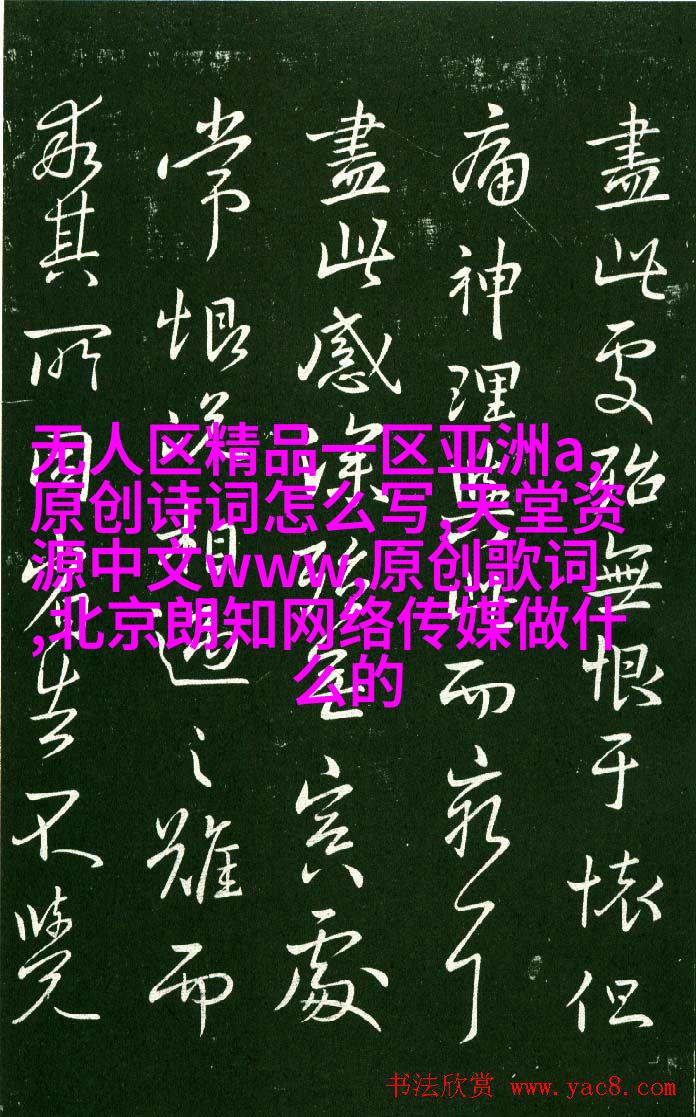 盡此殆無恨于懷但
痛神理而
盡此感深處
常恨過之雖而
其所因不覺
无人区精品一区亚洲a,
原创诗词怎么写,天堂资
源中文www,原创歌词
,北京朗知网络传媒做什
么的
书法欣赏 www.yac8.com